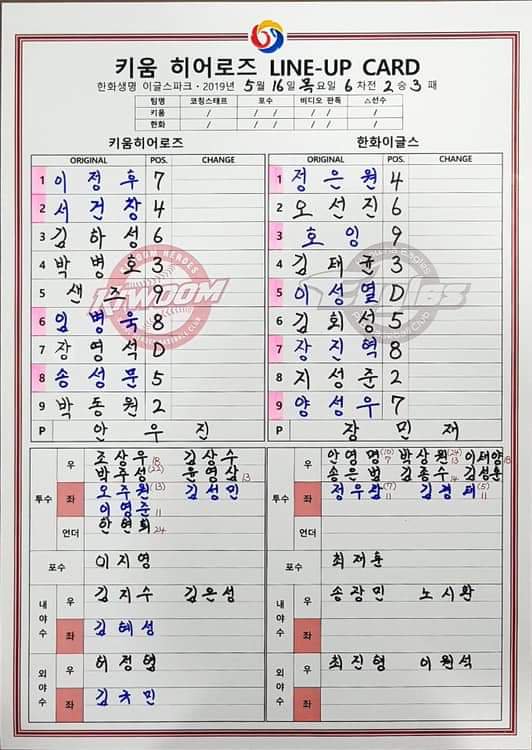 키움 히어로즈 LINE-UP CARD
한화생명 이글스파크 · 2019년 5월 16일 목요일 6차전 2승 3패
팀명 코칭스태프 포수 비디오 판독 △선수
키움 / / / / / /
한화 / / / / / /
키움히어로즈
ORIGINAL POS. CHANGE
1 이정후 7
2 서건창 4
3 김하성 6
4 박병호 3
5 샌즈 9
6 임병욱 8
7 장영석 D
8 송성문 5
9 박동원 2
P 안우진
HEROES
KIWOOM
BASEBALL CLUB
한화이글스
ORIGINAL POS. CHANGE
1 정은원 4
2 오선진 6
3 호잉 9
4 김태균 3
5 이성열 D
6 김회성 5
7 장진혁 8
8 지성준 2
9 양성우 7
P 장민재
Eagles
투수
우
조상우 18 김상수
박주성 (22) 윤영삼 13
좌
오주원 (13) 김성민
이영준 11
언더
안현희 24
포수
이지영
내야수
우
김지수 김은성
좌
김혜성
외야수
우
허정협
좌
김규민
투수
우
안영명 (10) 7 박상원 (24) 13 이태양 18
송은범 김종수 14 김성훈
좌
정우람 (7) 11 김경태 (5) 11
언더
포수
최재훈
내야수
우
송광민 노시환
좌
외야수
우
최진행 이원석
좌